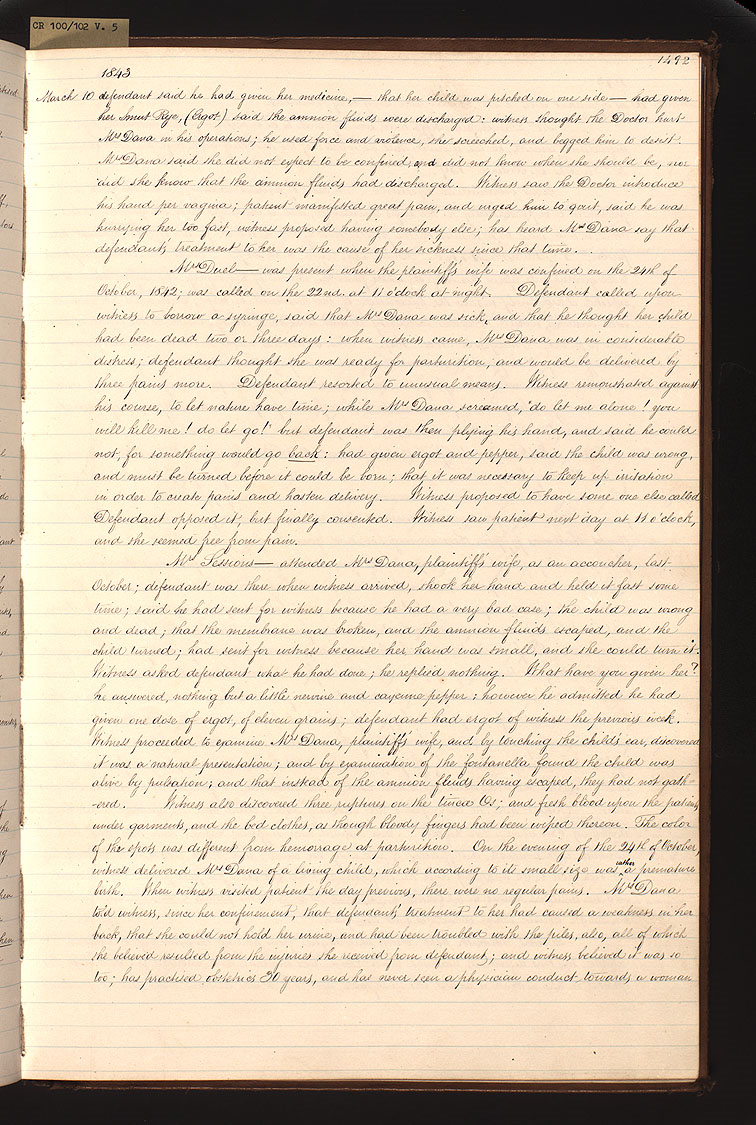 CR 100/102 V. 5
1492
1843
March 10. defendant said he had given her medicine,— that her child was pitched on one side — had given
her Smut Rye, (Ergot) said the amnion fluids were discharged: witness thought the Doctor hurt
Mrs Dana in his operations; he used force and violence, she screeched, and begged him to desist.
Mrs Dana said she did not expect to be confined, and did not know when she should be, nor
did she know that the amnion fluids had discharged. Witness saw the Doctor introduce
his hand per vagina; patient manifested great pain, and urged him to quit, said he was
hurrying her too fast, witness proposed having somebody else; has heard Mrs Dana say that
defendants treatment to her was the cause of her sickness since that time.
Mrs Duel— was present when the plaintiff's wife was confined on the 24th of
October, 1842; was called on the 22nd. at 11 o'clock at night. Defendant called upon
witness to borrow a syringe, said that Mrs Dana was sick, and that he thought her child
had been dead two or three days: when witness came, Mrs Dana was in considerable
distress; defendant thought she was ready for parturition, and would be delivered by
three pains more. Defendant resorted to unusual means. Witness remonstrated against
his course, to let nature have time; while Mrs Dana screamed, "do let me alone! you
will kill me! do let go!" but defendant was then plying his hand, and said he could
not, for something would go back: had given ergot and pepper, said the child was wrong,
and must be turned before it could be born; that it was necessary to keep up irritation
in order to create pains and hasten delivery. Witness proposed to have some one else called
Defendant opposed it, but finally consented. Witness saw patient next day at 11 o'clock,
and she seemed free from pain.
Mrs Sessions— attended Mrs Dana, plaintiff's wife, as an accoucher, last
October; defendant was there when witness arrived, shook her hand and held it fast some
time; said he had sent for witness because he had a very bad case; the child was wrong
and dead; that the membrane was broken, and the amnion fluids escaped, and the
child turned; had sent for witness because her hand was small, and she could turn it.
Witness asked defendant what he had done; he replied nothing. What have you given her?
he answered, nothing but a little nervine and cayenne pepper; however he admitted he had
given one dose of ergot, of eleven grains; defendant had ergot of witness the previous week.
Witness proceeded to examine Mrs Dana, plaintiff's wife, and by touching the child's ear, discovered
it was a natural presentation; and by examination of the fontanella found the child was
alive by pulsation; and that instead of the amnion fluids having escaped, they had not gath-
-ered. Witness also discovered three ruptures on the Os; and fresh blood upon the patients
under garments, and the bed clothes, as though bloody fingers had been wiped thereon. The color
of the spots was different from hemorrage at parturition. On the evening of the 24th of October,
witness delivered Mrs Dana of a living child, which according to its small size was rather a premature
birth. When witness visited patient the day previous, there were no regular pains. Mrs Dana
told witness, since her confinement, that defendants' treatment to her had caused a weakness in her
back, that she could not hold her urine, and had been troubled with the piles, also, all of which
she believed resulted from the injuries she received from defendant; and witness believed it was so
too; has practised obstetrics 30 years, and has never seen a physician conduct towards a woman